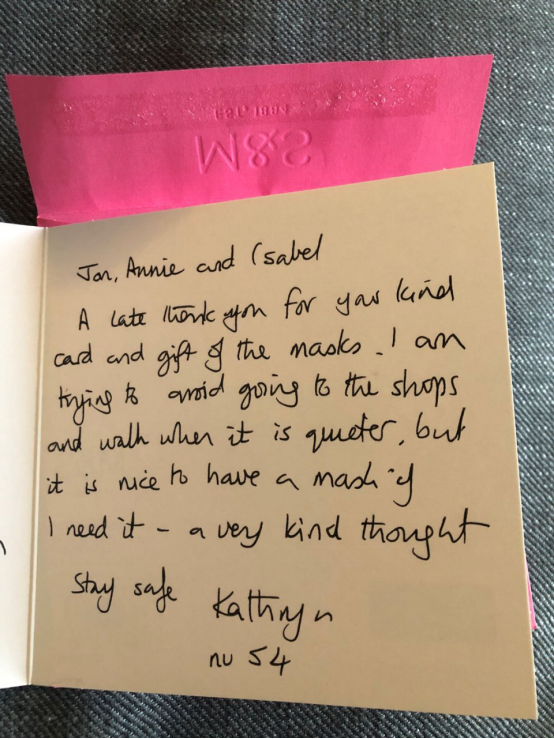 M&S
Jon, Annie and Isabel
A late thank you for your kind
card and gift of the masks. I am
trying to avoid going to the shops
and walk when it is quieter, but
it is nice to have a mask if
I need it - a very kind thought
Stay safe Kathryn
nu 54